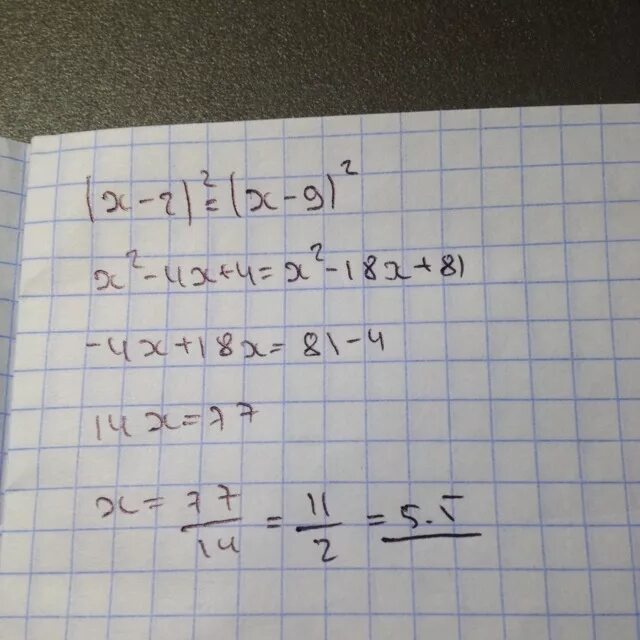 (x-2)²=(x-9)²
x²-4x+4=x²-18x+81
-4x+18x=81-4
14x=77
x=77/14=11/2=5.5